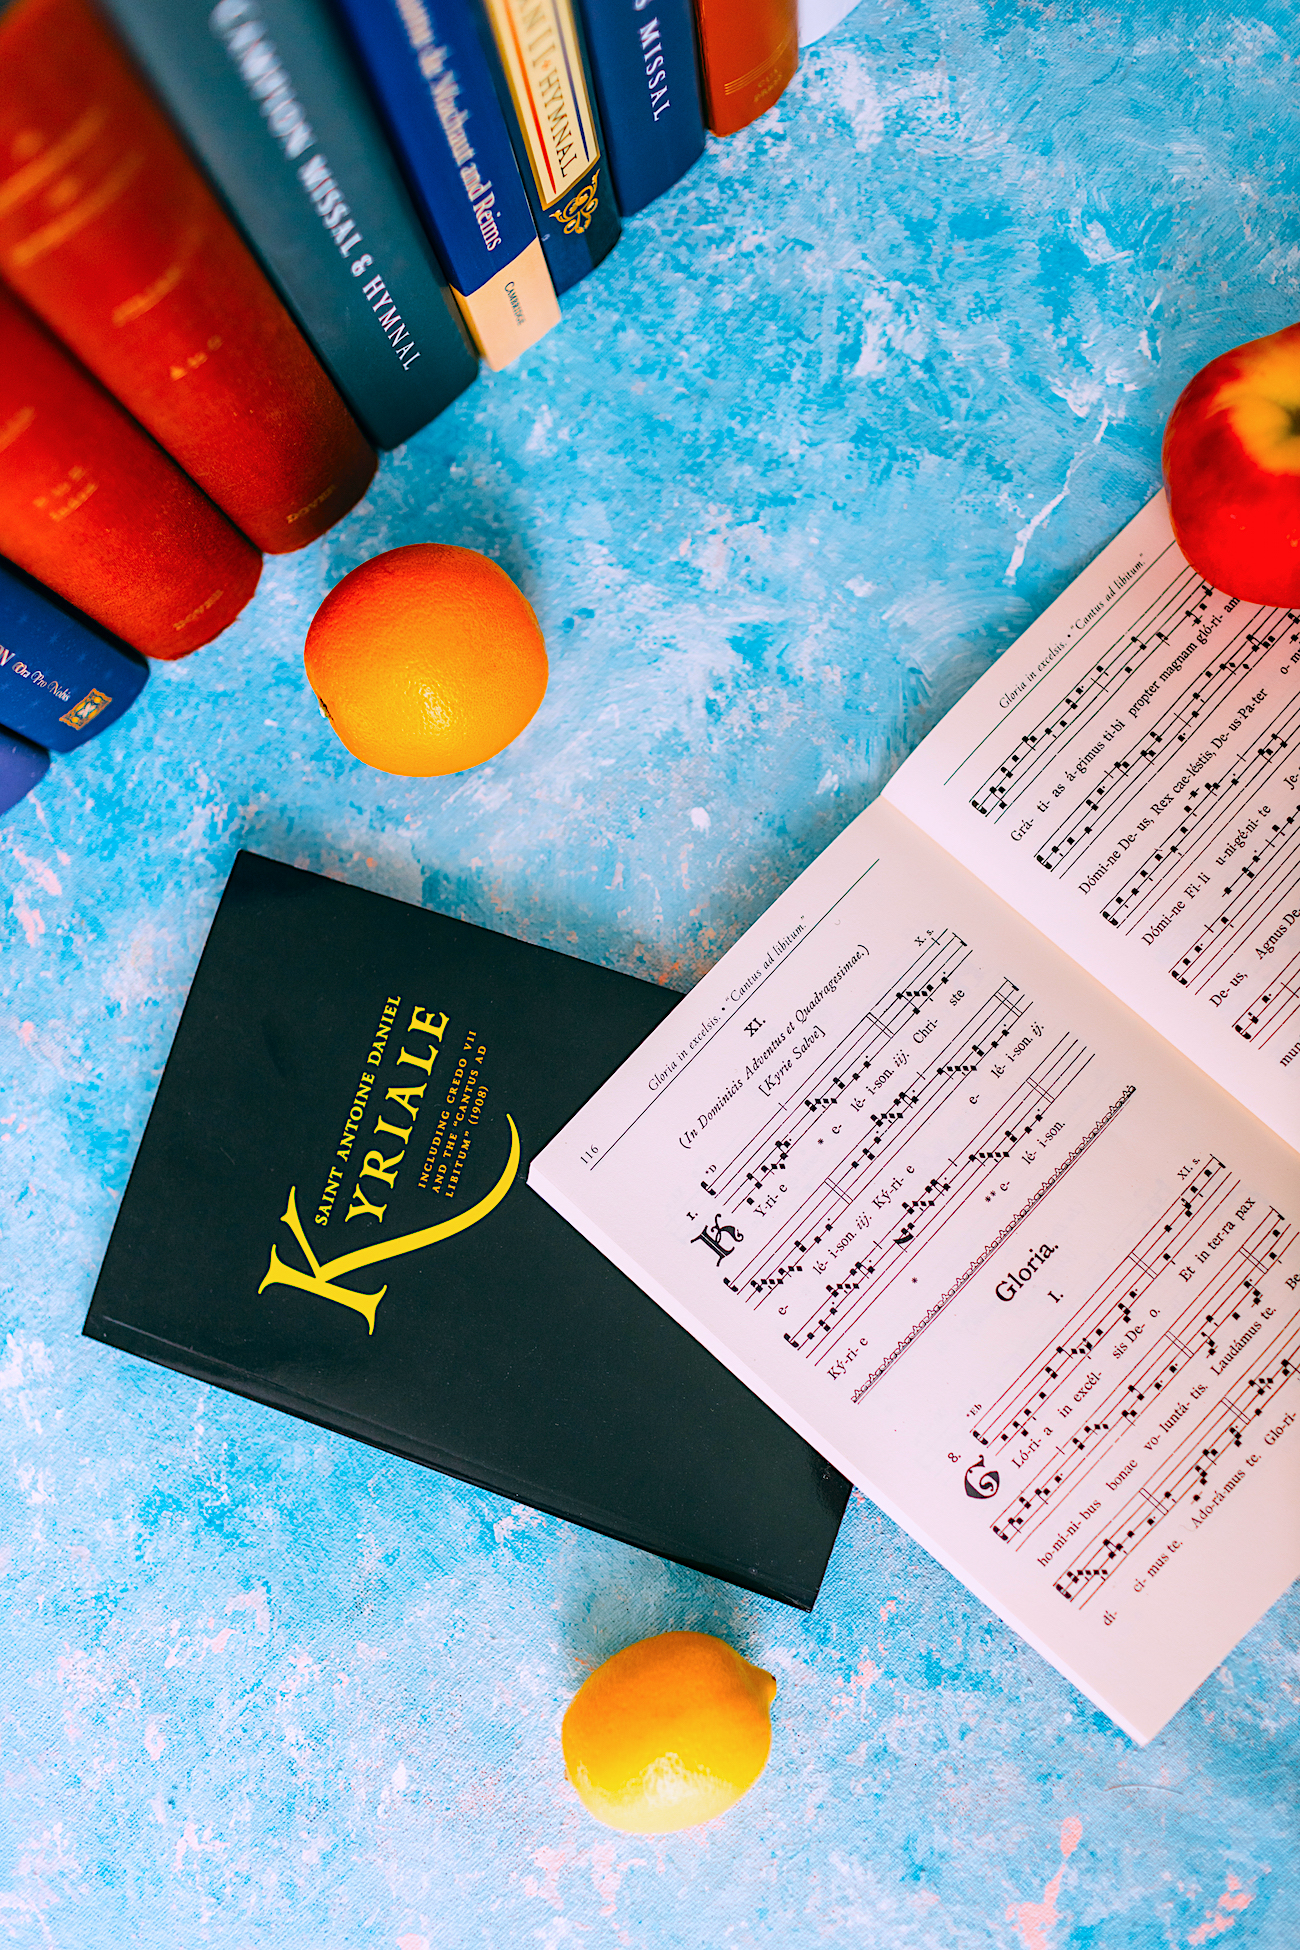 CAMPION MISSAL & HYMNAL
de Machaut and Reims
CAMBRIDGE
HYMNAL
MISSAL
DOVER
DOVER
Ora Pro Nobis
SAINT ANTOINE DANIEL
KYRIALE
INCLUDING CREDO VII
AND THE "CANTUS AD
LIBITUM" (1908)
116
Gloria in excelsis. • "Cantus ad libitum."
XI.
(In Dominicis Adventus et Quadragesimae.)
[Kyrie Salve]
X. s.
1.
*D
KY-ri- e * e- lé- i-son. iij. Chri- ste
e- lé- i-son. iij. Ký-ri- e e- lé- i-son. ij.
Ký-ri- e * ** e- lé- i-son.
Gloria.
I.
XI. s.
8.
*Eb
GLó-ri- a in excél- sis De- o. Et in ter-ra pax
ho-mi-ni- bus bonae vo- luntá- tis. Laudámus te. Be
di- ci- mus te. Ado-rá-mus te. Glo-ri-
Gloria in excelsis. • "Cantus ad libitum."
Grá- ti- as á-gimus ti-bi propter magnam gló-ri- am
Dómi-ne De- us, Rex cae-léstis, De- us Pa-ter o- m
Dómi-ne Fi- li u-ni-gé-ni- te Je-
De- us, Agnus De-
mun